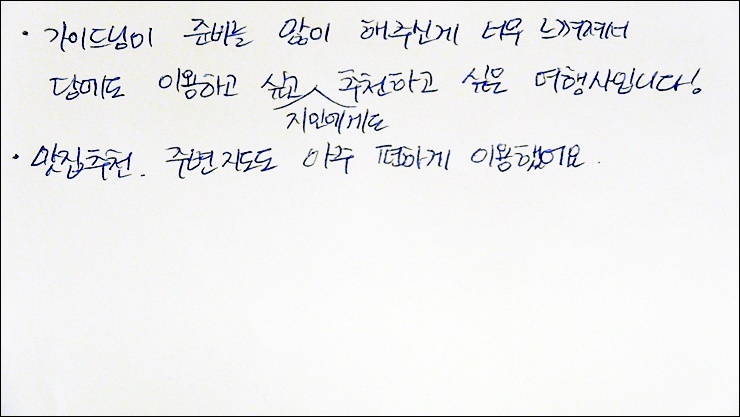 · 가이드님이 준비를 많이 해주신게 너무 느껴져서
담에도 이용하고 싶고 추천하고 싶은 여행사입니다!
지인에게도
· 맛집추천. 주변지도도 아주 편하게 이용했어요.